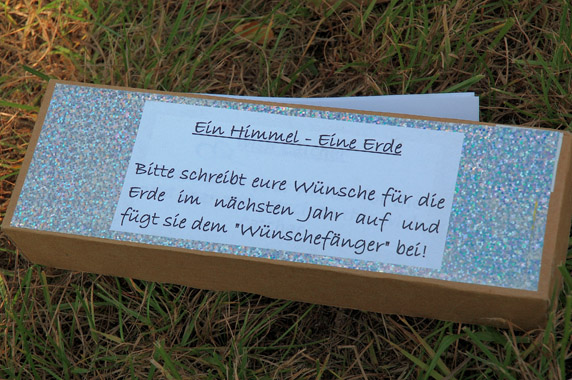 Ein Himmel - Eine Erde
Bitte schreibt eure Wünsche für die
Erde im nächsten Jahr auf und
fügt sie dem "Wünschefänger" bei!